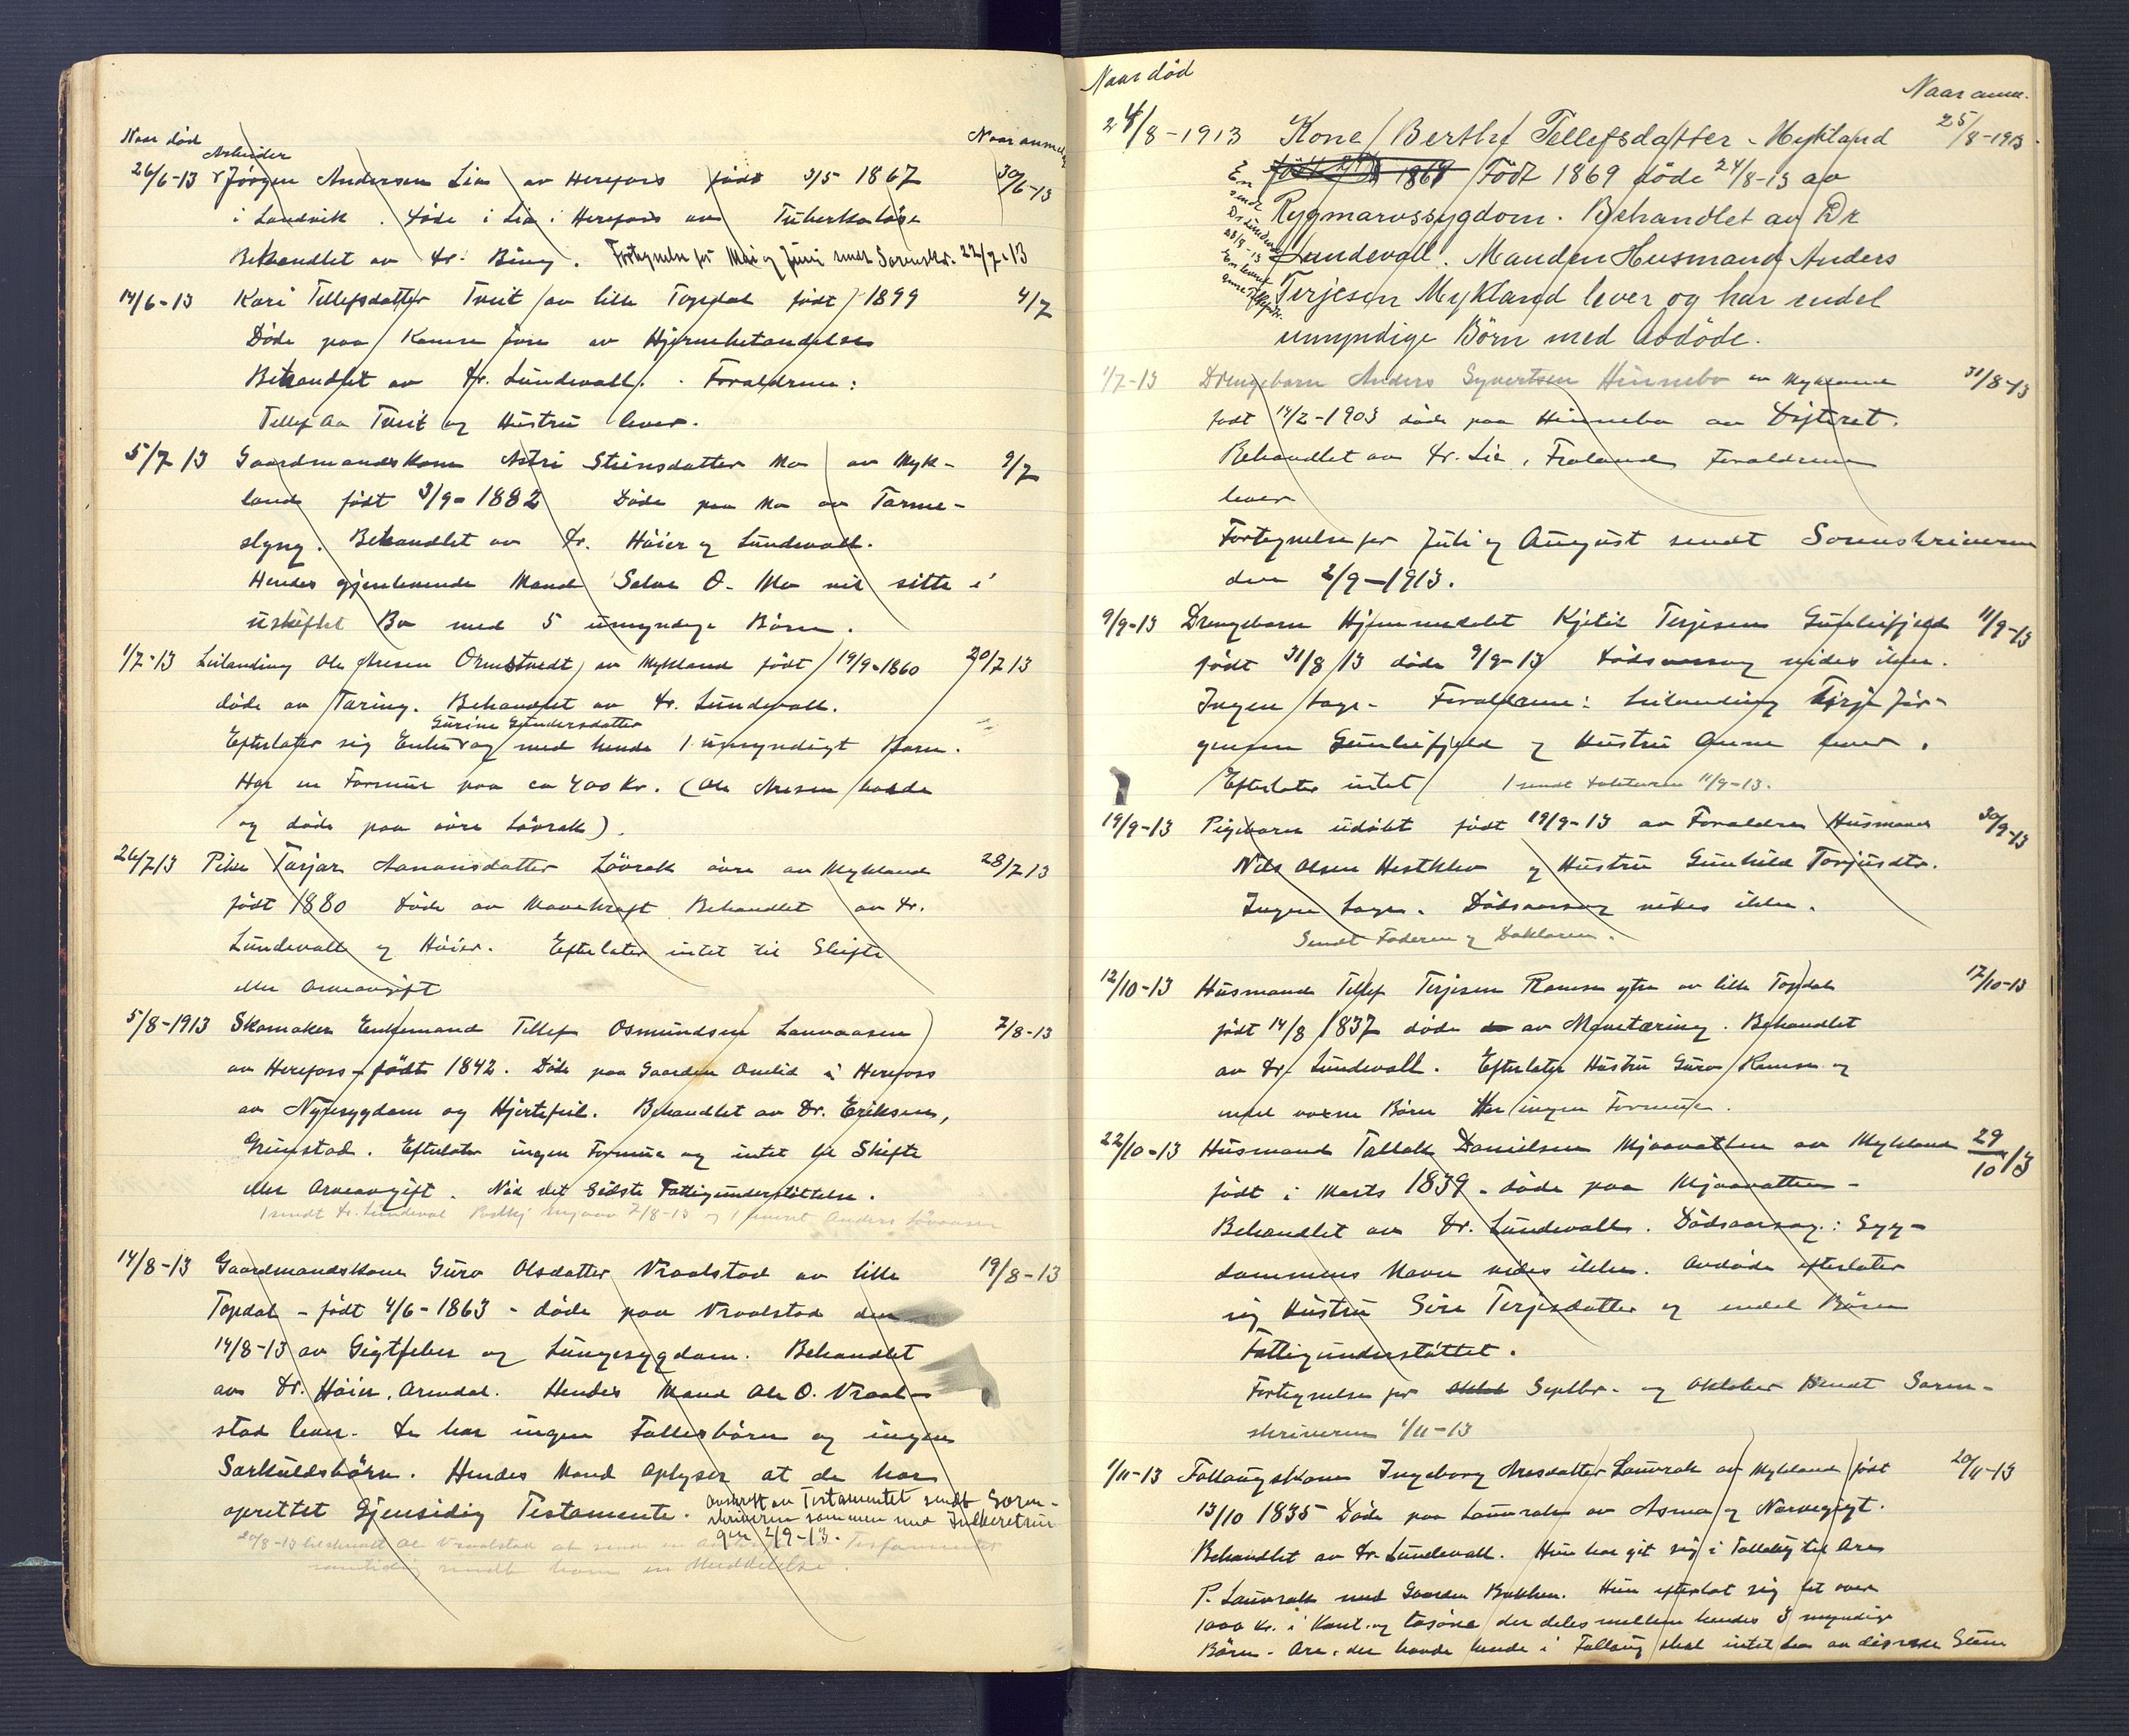 Naar død
Naar anm
Arbeider
26/6-13 Jörgen Andersen Lia av Herefoss född 3/5 1867 30/6-13
i Landvik. Döde i Lia i Herefoss av Tuberkulöse
Behandlet av Dr. Bing. Fortegnelse for Mai og Juni sendt Sorenskr. 22/7-13
14/6-13 Kari Tellefsdatter Tveit av lille Topdal født 1899 4/7
Döde paa Ramse av Hjernebetændelse
Behandlet av Dr. Lundevall. Forældrene:
Tellef Aa Tveit og Hustru lever.
5/7 13 Gaardmandskone Astri Steinsdatter Mo av Myk- 9/7
land født 3/9-1882 Döde paa Mo av Tarme-
slyng. Behandlet av Dr. Höier og Lundevall.
Hendes gjenlevende Mand Salve O. Mo vil sitte i
uskiftet Bo med 5 umyndige Börn.
1/7-13 Leilending Ole Aresen Ormstvedt av Mykland født 19/9-1860 20/7 13
döde av Tæring. Behandlet av Dr. Lundevall.
Gurine Gundersdatter
Efterlater sig Enke og med hende 1 umyndigt Barn.
Har en Formue paa ca 400 Kr. (Ole Aresen bodde
og döde paa övre Lövrak).
26/7 13 Pike Tarjar Aanonsdatter Lövrak övre av Mykland 28/7 13
født 1880 Döde av Mavekræft Behandlet av Dr.
Lundevall og Höier. Efterlater intet til Skifte
eller Arveavgift
5/8-1913 Skomaker Enkemand Tellef Osmundsen Lauvaasen 7/8-13
av Herefoss født 1842. Döde paa Gaarden Omlid i Herefoss
av Nyresygdom og Hjertefeil. Behandlet av Dr. Eriksen,
Grimstad. Efterlater ingen Formue og intet til Skifte
eller Arveavgift. Nöd det Sidste Fattigunderstöttelse.
1 sendt Dr. Lundeval 7/8-13 og 1 Anders
14/8-13 Gaardmandskone Guro Olsdatter Vraalstad av lille 19/8-13
Topdal - født 4/6-1863 - döde paa Vraalstad den
14/8-13 av Gigtfeber og Lungesygdom. Behandlet
av Dr. Höier, Arendal. Hendes Mand Ole O. Vraal-
stad lever. De har ingen Fællesbörn og ingen
Særkuldsbörn. Hendes Mand oplyser at de har
oprettet Gjensidig Testamente. Avskrift av Testamentet sendt Soren-
skriveren sammen med
2/9-13.
20/8-13 Ole Vraalstad at sende en Testamentet
samtidig sendt ham en Meddelelse.
Naar død
Naar anm.
24/8-1913 Kone Berthe Tellefsdatter - Mykland 25/8-1913.
1868 Född 1869 döde 24/8-13 av
Rygmarvssygdom. Behandlet av Dr
Lundevall. Manden Husmand Anders
Terjesen Mykland lever og har endel
umyndige Börn med Avdöde.
En
sendt
Dr Lundevall
28/8-13
1/7-13 Drengebarn Anders Syvertsen Hinnebo av Mykland 31/8-13
født 14/2-1903 döde paa Hinnebo av Difterit.
Behandlet av Dr. Lie, Froland Forældrene
lever
Fortegnelse for Juli og August sendt Sorenskriveren
den 2/9-1913.
9/9-13 Drengebarn Hjemmedøbt Kjetil Terjesen Gunleifjeld 11/9-13
født 31/8 13 döde 9/9-13 Dödsaarsag vides ikke.
Ingen Læge - Forældrene: Leilending Terje Jör-
gensen Gunleifjeld og Hustru Anne lever.
Efterlater intet 1 sendt Doktoren 11/9-13.
19/9-13 Pigebarn udöbt født 19/9-13 av Forældre Husmand 30/9-13
Nils Olsen Hestkleo og Hustru Gunhild Torjusdtr.
Ingen Læge. Dödsaarsag vides ikke.
Sendt Faderen og Doktoren.
12/10-13 Husmand Tellef Terjesen Ramse ytre av lille Topdal 17/10-13
født 14/8 1837 döde av Mavetæring. Behandlet
av Dr Lundevall. Efterlater Hustru Guro Ramse og
med voxne Börn Har ingen Formue.
22/10-13 Husmand Tallak Danielsen Mjaavatten av Mykland 29/10 13
født i Marts 1839 - döde paa Mjaavatten -
Behandlet av Dr. Lundevall. Dödsaarsag: Syg-
dommens Navn vides ikke. Avdöde efterlater
sig Hustru Siri Terjesdatter og endel Börn
Fattigunderstöttet.
Fortegnelse for Septbr. og Oktober sendt Soren-
skriveren 1/11-13
1/11-13 Follaugskone Ingeborg Aresdatter Lauvrak av Mykland født 20/11-13
13/10 1835 Döde paa Lauvrak av Asma og Nervegigt.
Behandlet av Dr. Lundevall. Hun har git sig i Follaug til Are
P. Lauvrak med Gaarden Bakken. Hun efterlot sig litt over
1000 Kr. i Kont. og Lösöre der deles mellem hendes 3 myndige
Börn - Are, der havde hende i Follaug skal intet ha av disse